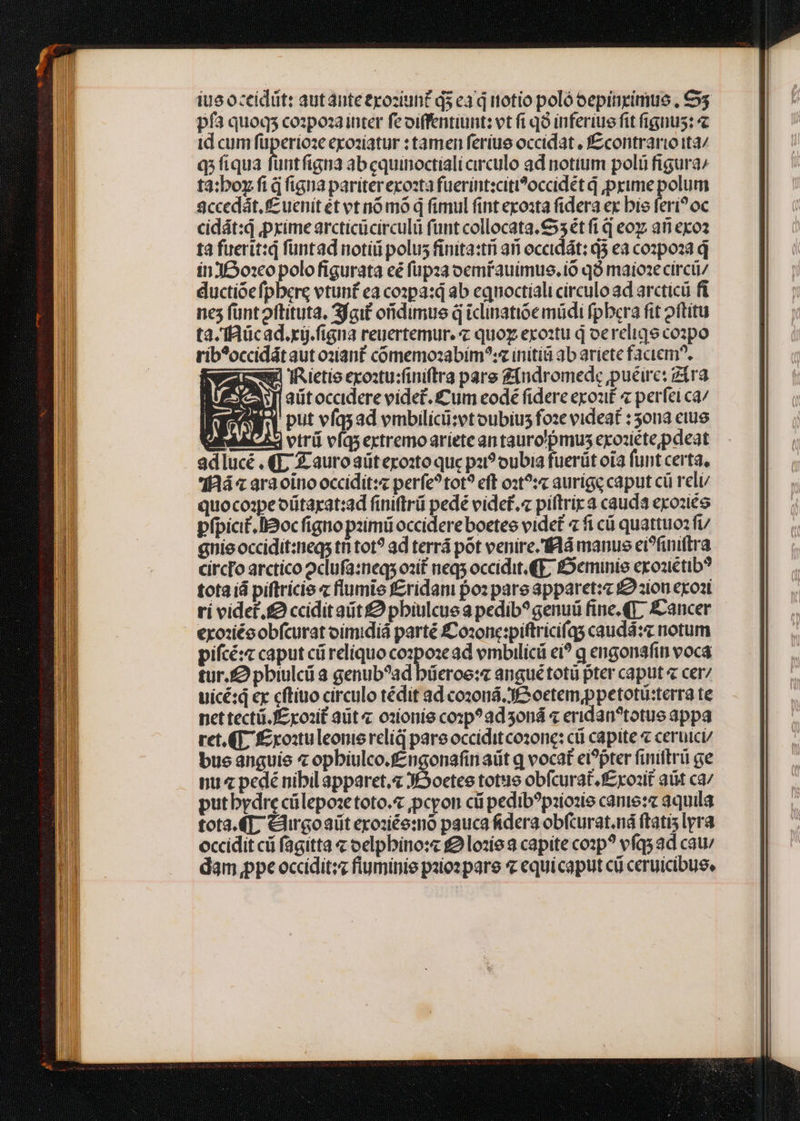 ius occidūt: aut ante exoriunt᷑ q̄ꝫ ea q̄ notio polo depinximus. Sꝫ
ip̄a quoqꝫ corpora inter se dissentiunt: vt si qd̄ inferius sit signuꝫ: ⁊
id cum superiore exoriatur: tamen serius occidat. E contrario ita/
qꝫ si qua sunt signa ab equinoctiali circulo ad notium polū figura/
ta: hoꝝ si q̄ signa pariter exorta fuerint: citiꝰ occidēt q̄ ꝓxime polum
accedāt. Euenit ēt vt nō mō q̄ simul sint exorta sidera ex his seriꝰ oc
cidāt: q̄ ꝓxime arcticū circulū sunt collocata. Sꝫ ēt si q̄ eoꝝ an̄ exor
ta fuerit: q̄ sunt ad notiū poluꝫ finita: tn̄ an̄ occidāt: q̄ꝫ ea corpora q̄
in Boreo polo figurata eē supra demr̄auimus. iō qd̄ maiore circū/
ductiōe sphere vtunt᷑ ea corpa: q̄ ab eqnoctiali circulo ad arcticū fi
nes sunt ꝯstituta. Igit᷑ on̄dimus q̄ īclinatiōe mūdi sphera sit ꝯstitu
ta. Nūc ad .xij. signa reuertemur. ⁊ quoꝝ exortu q̄ de reliqs corpo
ribꝰ occidāt aut oriant᷑ cōmemorabimꝰ: ⁊ initiū ab ariete faciemꝰ.
Rietis exortu: sinistra pars Andromede ꝓuēire: Ara
aūt occidere videt᷑. Cum eodē sidere exorit᷑ ⁊ persei ca/
put vsqꝫ ad vmbilicū: vt dubius fore videat᷑: zona eius
vtrū vsqꝫ extremo ariete an tauro pmuꝫ exoriēte ꝓdeat
ad lucē. ¶ Tauro aūt exorto que prꝰ dubia fuerūt oīa sunt certa.
Nā ⁊ ara oīno occidit: ⁊ perseꝰ totꝰ est ortꝰ: ⁊ aurige caput cū reli/
quo corpe dūtaxat: ad sinistrū pedē videt᷑. ⁊ pistrix a cauda exoriēs
ꝑspicit᷑. Hoc signo primū occidere boetes videt᷑ ⁊ si cū quattuor si/
gnis occidit: neqꝫ tn̄ totꝰ ad terrā pōt venire. Nā manus eiꝰ sinistra
circl̄o arctico ꝯclusa: neqꝫ orit᷑ neqꝫ occidit. ¶ Geminis exoriētibꝰ
tota iā pistricis ⁊ flumis Eridani por pars apparet: ⁊ Orion exori
ri videt᷑. Occidit aūt Ophiulcus a pedibꝰ genuū fine. ¶ Cancer
exoriēs obscurat dimidiā partē Corone: pistricisqꝫ caudā: ⁊ notum
piscē: ⁊ caput cū reliquo corpore ad vmbilicū eiꝰ q engonasin voca
tur. Ophiulcū a genubꝰ ad hūeros: ⁊ anguē totū p̄ter caput ⁊ cer/
uicē: q̄ ex estiuo circulo tēdit ad coronā. Boetem ꝓpe totū: terra te
net tectū. Exorit᷑ aūt ⁊ orionis corpꝰ ad zonā ⁊ eridanꝰ totus appa
ret. ¶ Exortu leonis reliq̄ pars occidit corone: cū capite ⁊ ceruici/
bus anguis ⁊ ophiulco. Engonasin aūt q vocat᷑ eiꝰ p̄ter sinistrū ge
nu ⁊ pedē nihil apparet. ⁊ Boetes totus obscurat᷑. Exorit᷑ aūt ca/
put hydre cū lepore toto. ⁊ ꝓcyon cū pedibꝰ prioris canis: ⁊ aquila
tota. ¶ Uirgo aūt exoriēs: nō pauca sidera obscurat. nā statiꝫ lyra
occidit cū sagitta ⁊ delphino: ⁊ Oloris a capite corpꝰ vsqꝫ ad cau/
dam ꝓpe occidit: ⁊ fluminis prior pars ⁊ equi caput cū ceruicibus.